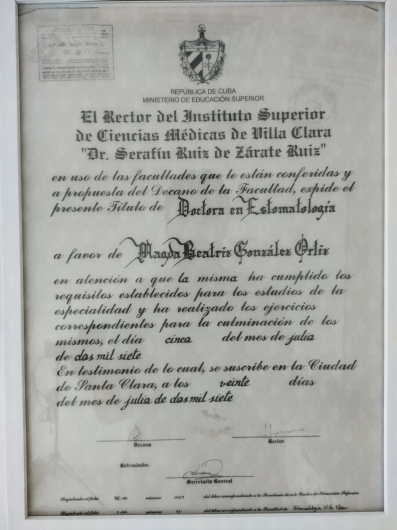 REPÚBLICA DE CUBA
MINISTERIO DE EDUCACIÓN SUPERIOR
El Rector del Instituto Superior
de Ciencias Médicas de Villa Clara
"Dr. Serafín Ruiz de Zárate Ruiz"
en uso de las facultades que le están conferidas y
a propuesta del Decano de la Facultad, expide el
presente Título de Doctora en Estomatología
a favor de Magda Beatriz González Ortiz
en atención a que la misma ha cumplido los
requisitos establecidos para los estudios de la
especialidad y ha realizado los ejercicios
correspondientes para la culminación de los
mismos, el día cinco del mes de julio
de dos mil siete
En testimonio de lo cual, se suscribe en la Ciudad
de Santa Clara, a los veinte días
del mes de julio de dos mil siete
Decano
Rector
Refrendado:
Secretario General